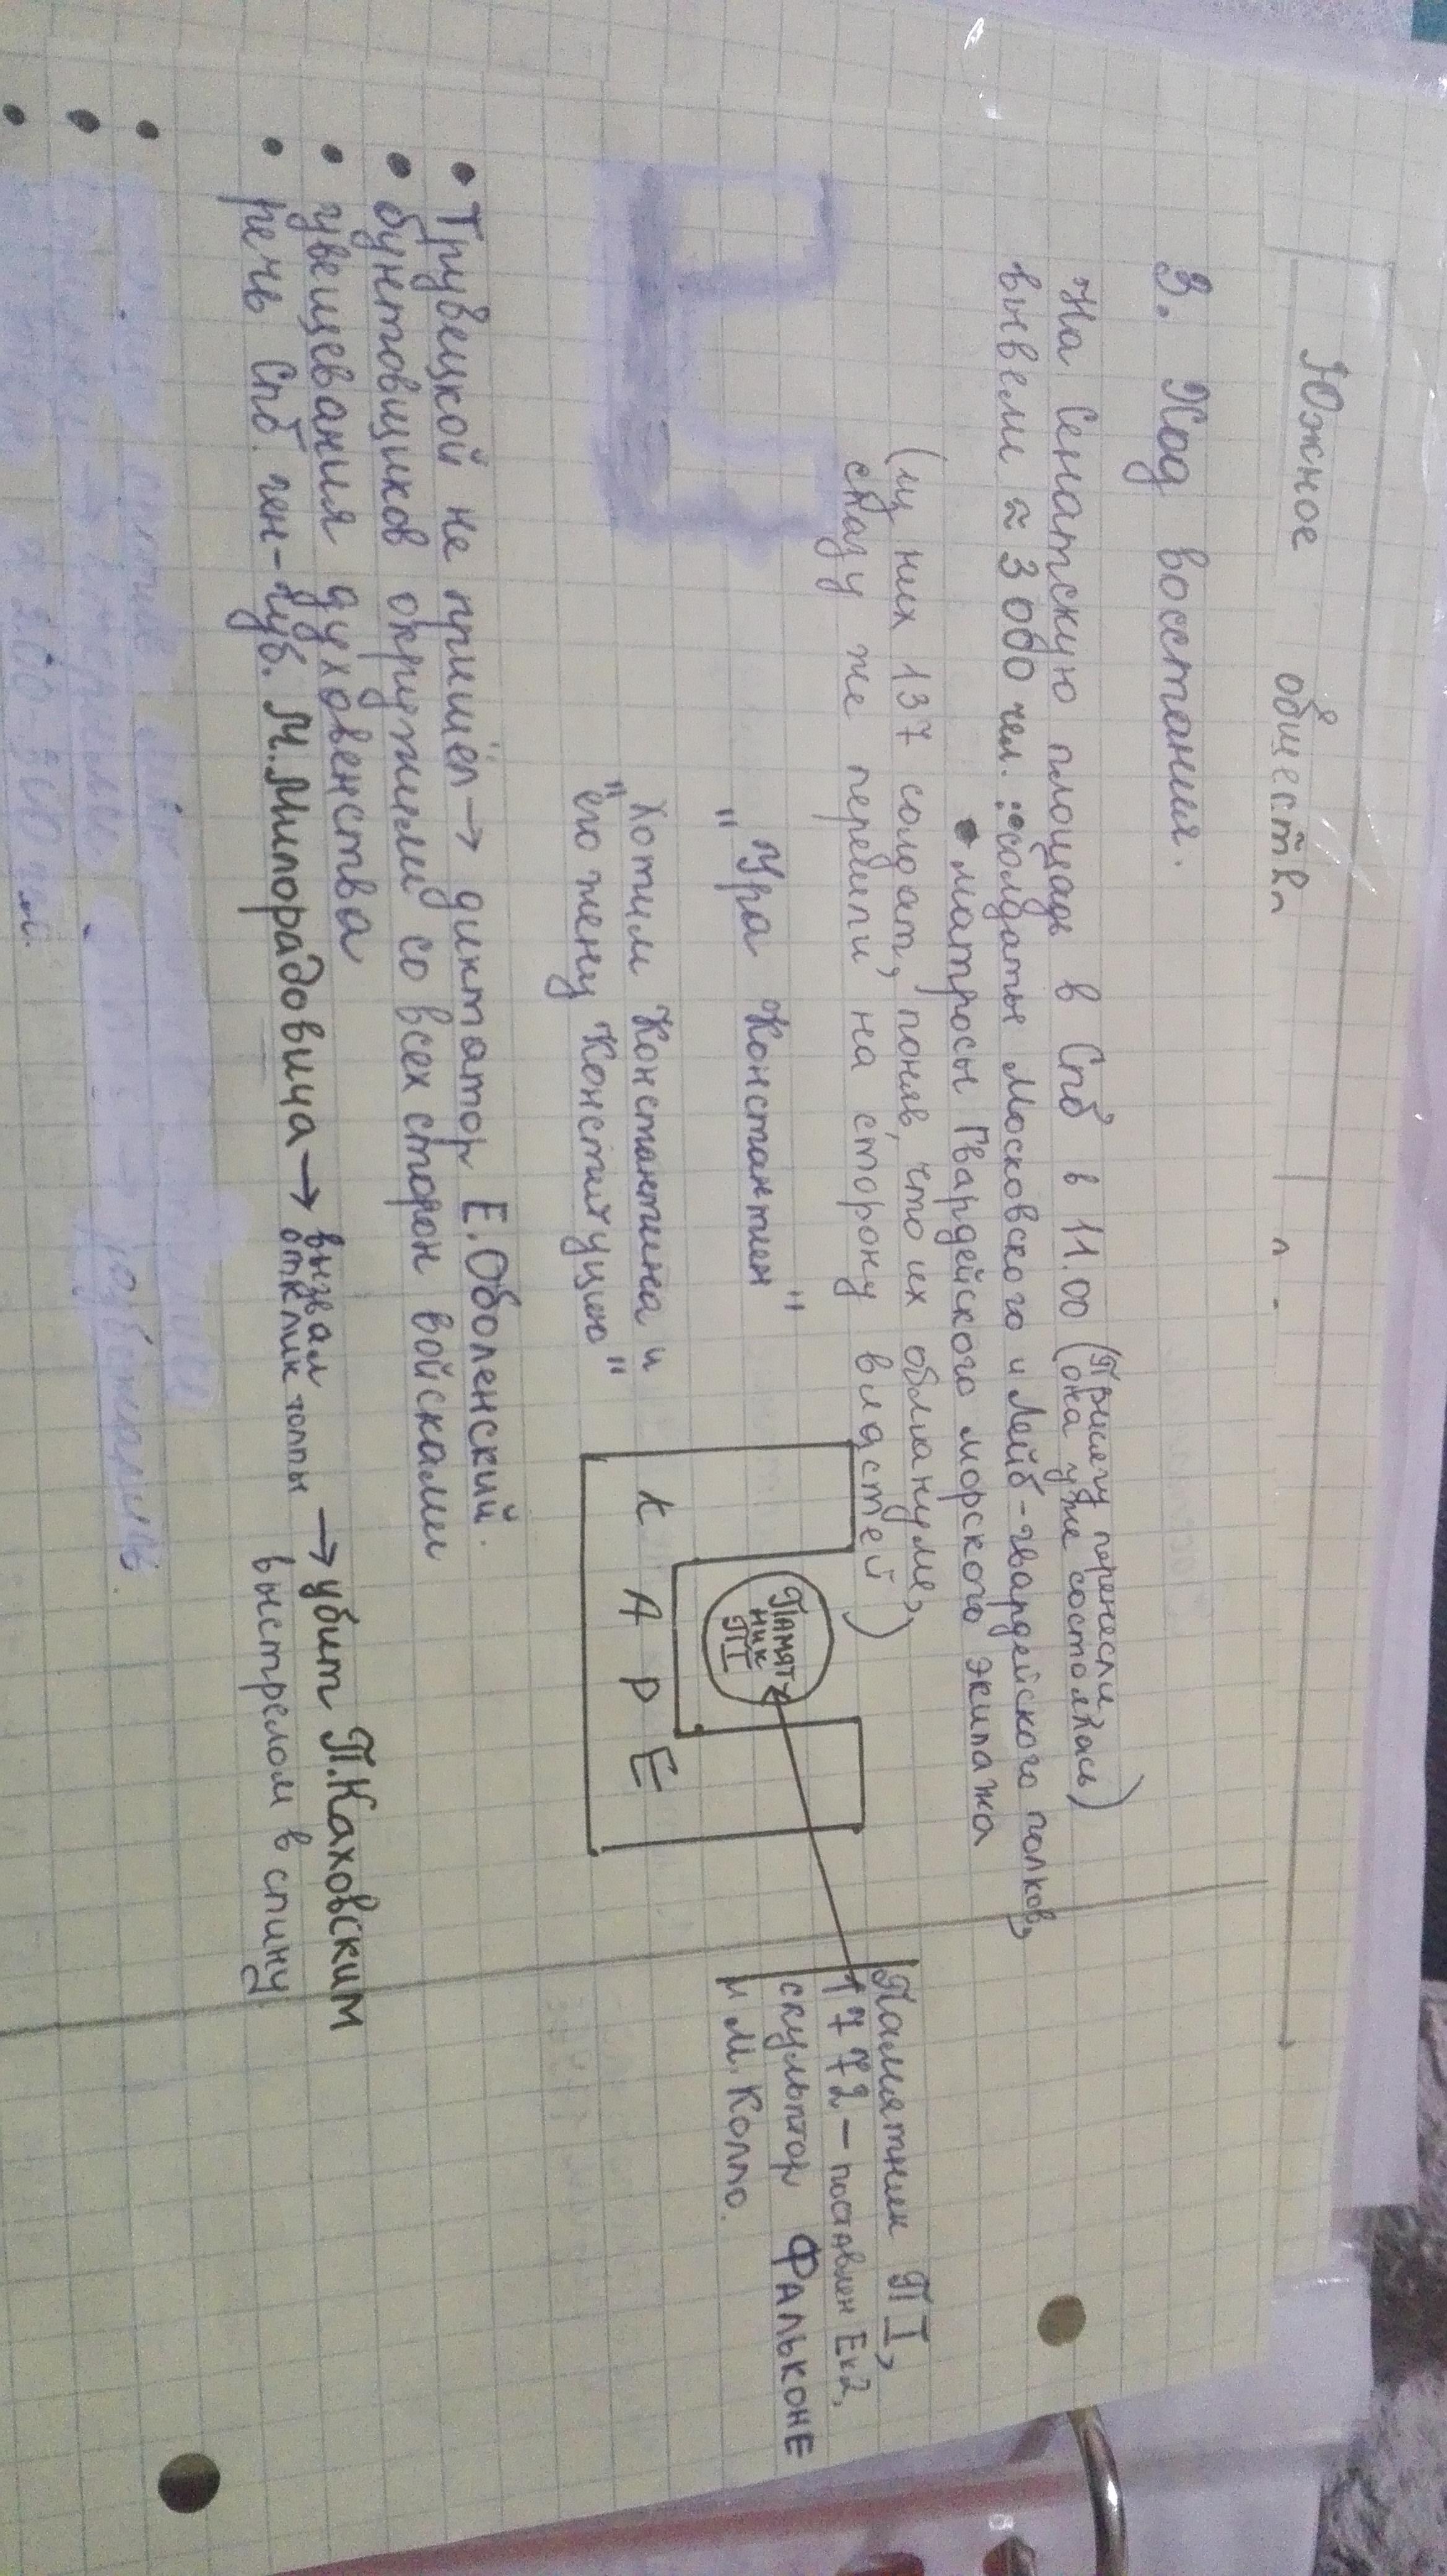 Южное обществ
3. Ход восстания.
На Сенатскую площадь в Спб в 11.00 (Присягу перенесли,
она уже состоялась)
вывели ≈ 3 000 чел.: • солдаты Московского и Лейб-гвардейского полков,
• матросы Гвардейского морского экипажа
(из них 137 солдат, поняв, что их обманули,
сразу же перешли на сторону властей)
"Ура Константин"
Хотим Константина и
"его жену Конституцию"
КАРЕ
Памят
ник
П I
Памятник П I,
1772 – поставлен Ек2,
скульптор Фальконе
и М. Колло.
• Трубецкой не пришёл → диктатор Е. Оболенский.
• бунтовщиков окружили со всех сторон войсками
• увещевания духовенства
• речь Спб. ген-губ. М. Милорадовича → вызвал
отклик толпы → убит П. Каховским
выстрелом в спину